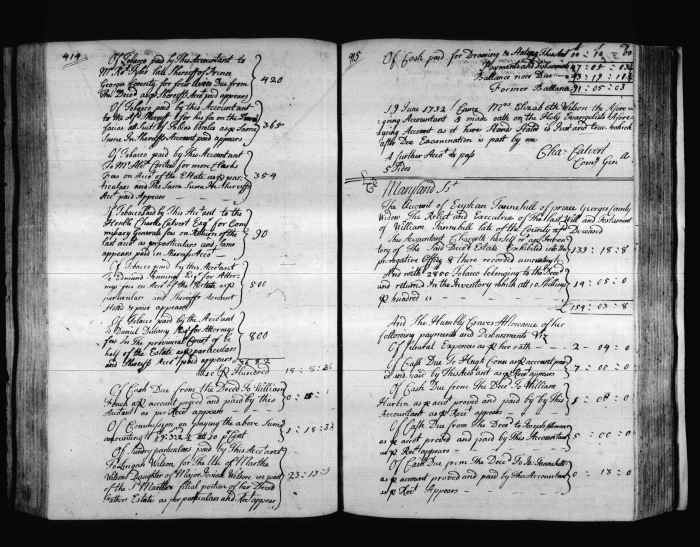 414
Of Tobacco paid by This Accountant to
Mr. Tyler late Sheriff of Prince
Georges County for four Levies Due from
The Deced as p Sheriffs Acct paid appears
420
Of Tobacco paid by this Accountant
to the Sheriff for his fee on the
facias at Suit of Tobias as p Same
Sume in Sheriffs Account paid appears
365
Of Tobacco paid by This Accountant
To Mr. for mens Clarks
Fees on Acct of the Estate as p par-
ticulars and The Same Sume in Sheriffs
Acct paid Appears
354
Of Tobacco paid by This Accountant to the
Honble Charles Calvert Esqr for Com-
missary Generals fees on Return of the
last acct as p particulars and Same
appears paid in Sheriffs Acct
90
Of Tobacco paid by this Accountant
To Edmund Jennings Esqr for Attor-
ney fees on Acct of the Estate as p
particular and Sheriffs Account
paid appears
500
Of Tobacco paid by the Accountant
to Daniel Dulany Esqr for Attorneys
fees in The provincial Court of be-
half of the Estate as p particulars
and Sheriffs Acct paid appears
800
p Hundred
Of Cash Due from the Deced To William
as p account proved and paid by this
Accountant as per Rect appears
Of Commission on Playing the above Sume
amounting to at 10 p Cent
Of Sundry particulars paid by This Accountant
To Lingan Wilson for The Use of Martha
Wilson Daughter of Major Josiah Wilson in part
of the Sd Marthas filial portion of her Deced
Fathers Estate as per particulars and Rec appears
415
Of Cash paid for Drawing & Stating This Acct 00 : 12 : 00
Payments and
Ballance now Due
Former Ballance 91 : 05 : 03
19 June 1732 / Came Mrs Elizabeth Wilson the Afore-
going Accountant & made oath on the Holy Evangelists Afore-
going Account as it here Stands Stated is Just and true which
after Due Examination is past by me
4 further Acct to pass
Cha Calvert
Comy Genl
5 Sides
Maryland Sst
The Account of Euphan Tannehill of prince Georges County
Widow The Relict and Executrix of the last Will and Testament
of William Tannehill late of the County afd Deceased
This Accountant Chargeth herself wth an Inven-
tory of The Said Deced Estate Exhibited into the
prerogative Office & there recorded amounting to
139 : 18 : 8
And with 2850 Tobacco belonging to the Deced
and return'd In the Inventory which att 10 Shillings
p hundred is
14 : 05 : 0
£ 154 : 03 : 8
And She Humbly Craves Allowance of her
following payments and Disbursements Vizt
Of Funeral Expences as p her oath
2 - 04 - 0
Of Cash Due To Hugh Conn as p account prov-
ed and paid by This Accountant as p Rect appears
7 : 00 : 0
Of Cash Due from The Deced To William
Harbin as p acct proved and paid by this
Accountant as p Rect appears
1 : 08 : 0
Of Cash Due from The Deced To
as p account proved and paid by The Accountant
as p Rect appears
5 : 00 : 0
Of Cash Due from The Deced To Tannehill
as p account proved and paid by this Accountant
as p Rect Appears
0 : 13 : 0